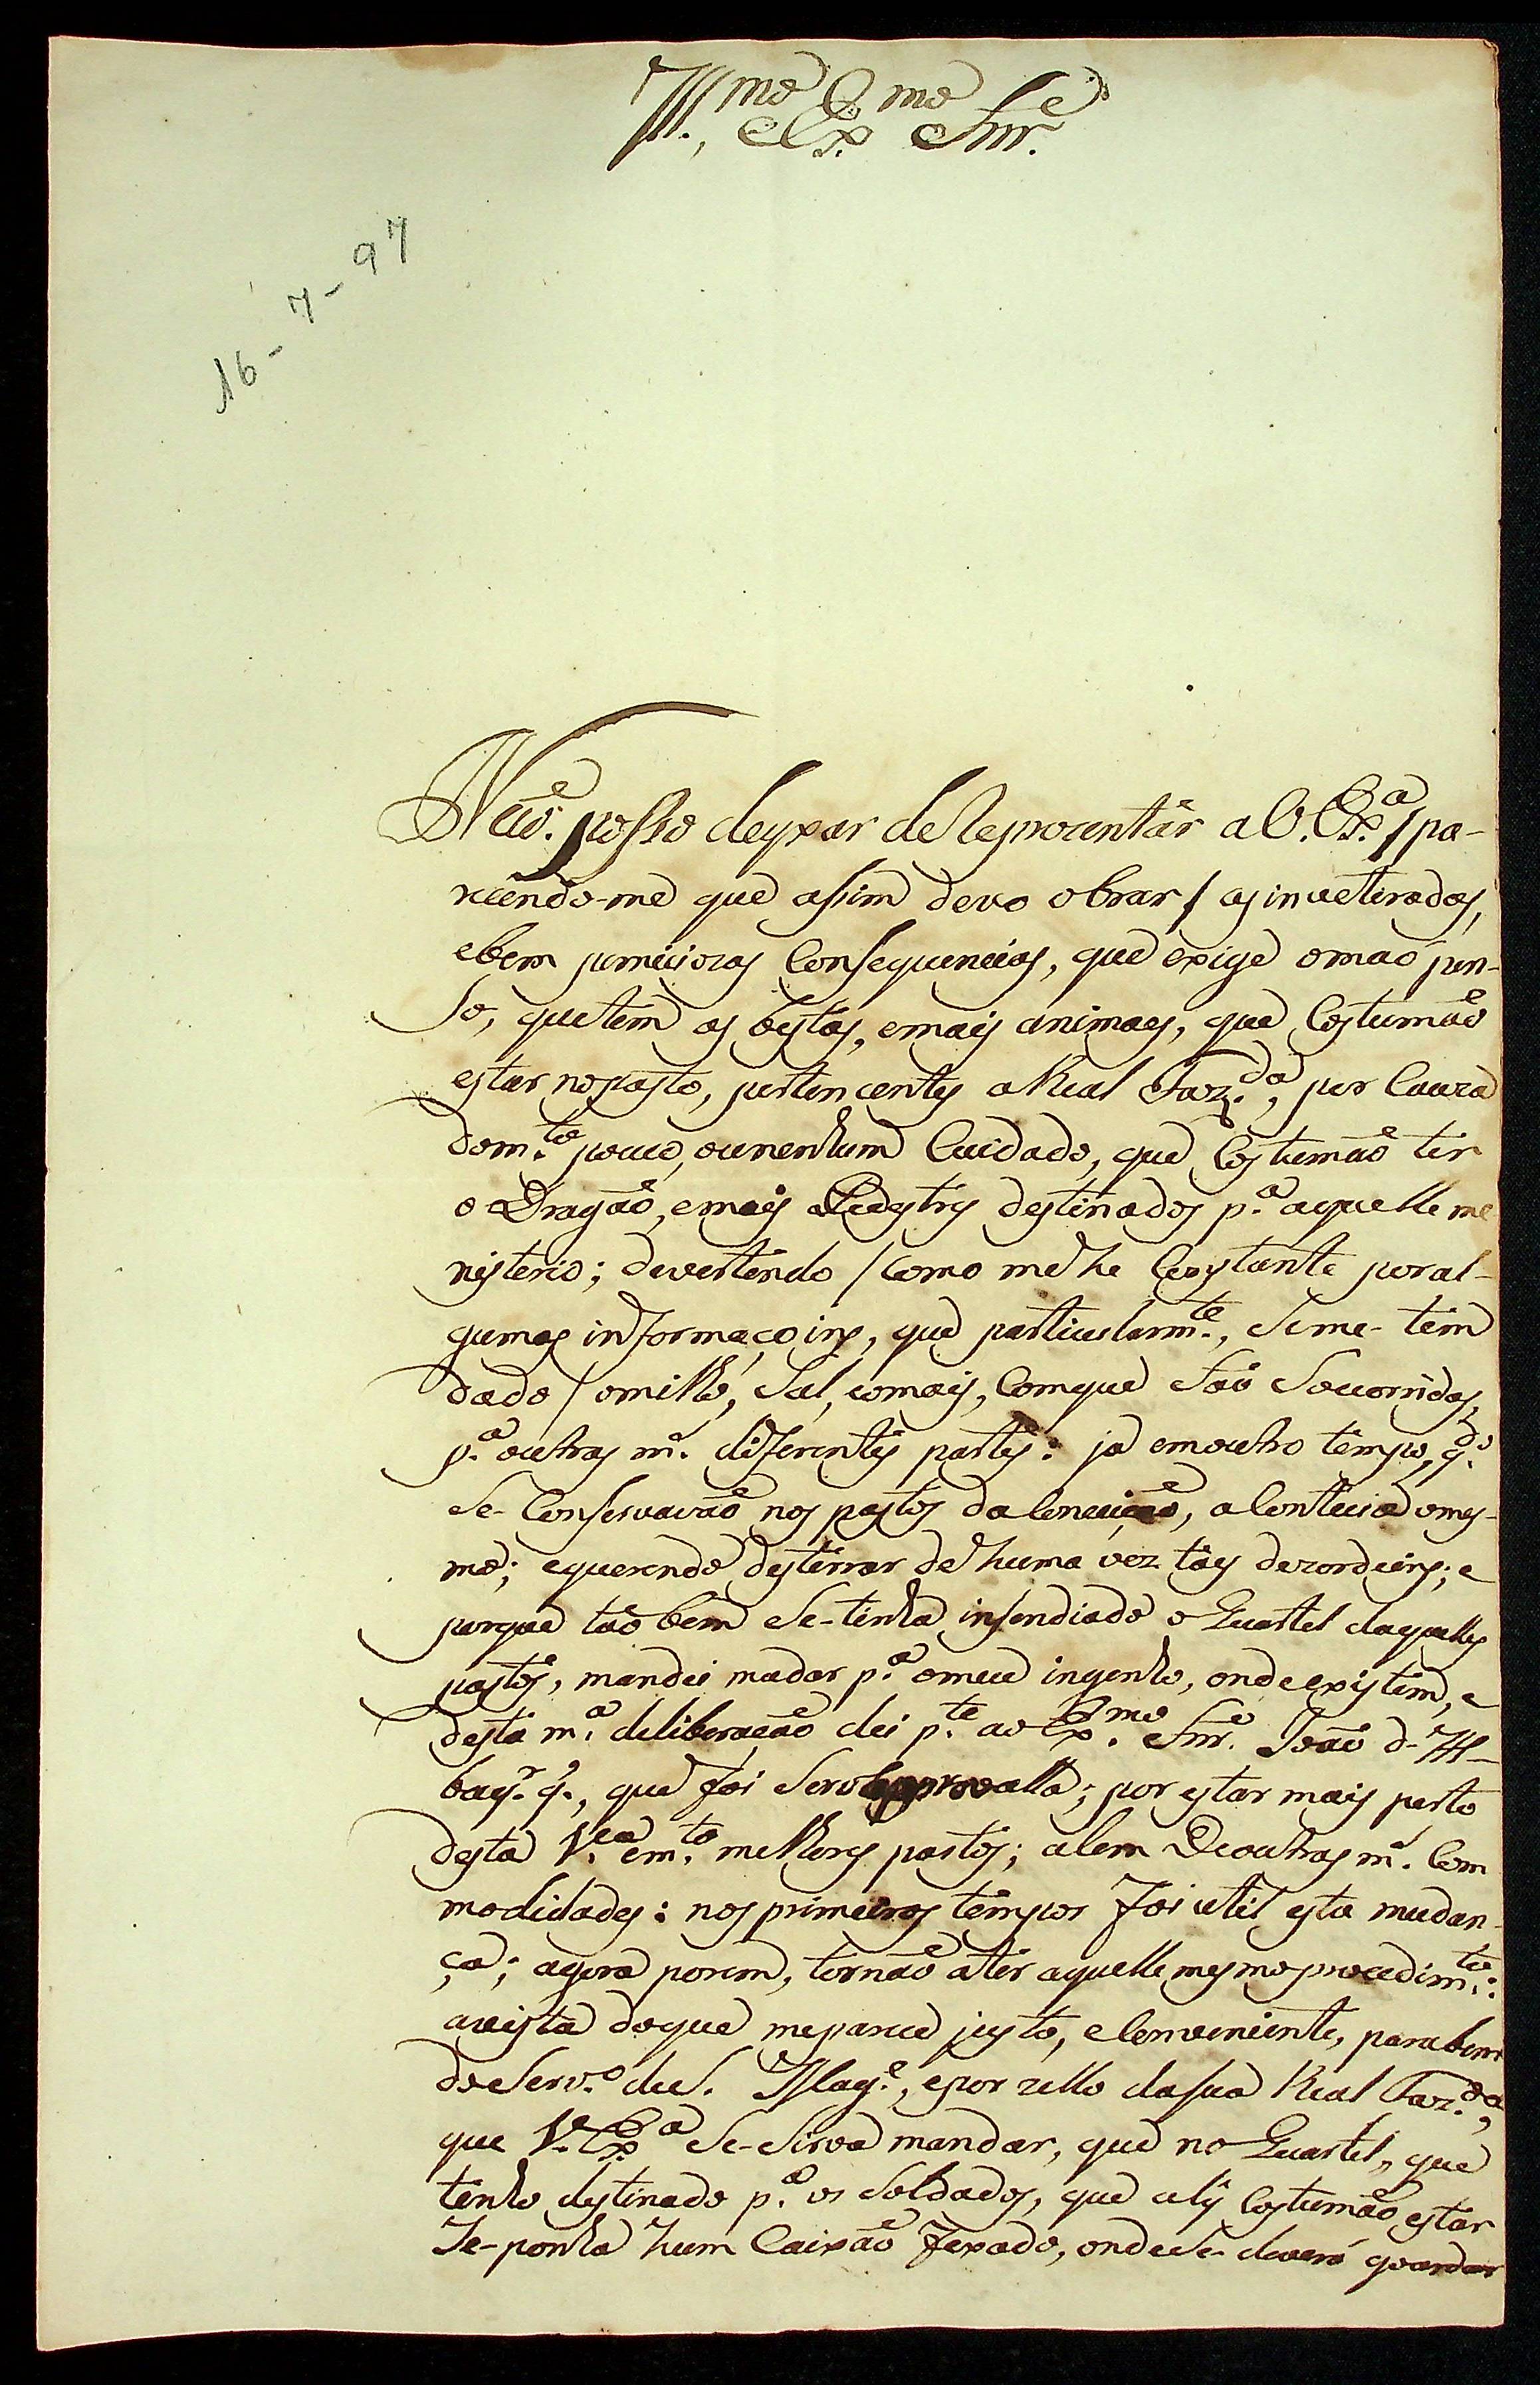 Ill.mo e Ex.mo Snr.
16-7-97
Naõ posso deyxar de Reprezentár a V. Ex.a / pa-
recendo-me que assim devo obrar / as inveteradas,
e bem perniciozas Consequencias, que exige o mao pen-
so, que tem as bestas, e mais animaes, que Costumaõ
estar no pasto, pertencentes a Real Faz.da, por Cauza
do m.to pouco, ou nenhum Cuidado, que Costumaõ ter
o Dragaõ, e mais Pedestres destinados p.a aquelle me
nisterio; devertindo / como me he Constante por al-
gumas informaçoins, que particularm.te, se me-tem
dado / o milho, Sal, e o mais, Com que Saõ Socorridas,
p.a outras m.s diferentes partes: ja em outro tempo, q.do
se-Conservavaõ nos pastos da Conceiçaõ, a Contecia o mes-
mo; e querendo desterrar de huma vez taes dezordeins; e
porque taõ bem se-tinha insendiado o Quartel daquelles
pastos, mandei mudar p.a o meu ingenho, onde existem, e
desta m.a deliberaçaõ dei p.te ao Ex.mo Snr. Joaõ d-Al-
buq.r q.e, que foi Servido approvalla; por estar mais perto
desta V.a e m.to melhores pastos; alem De outras m.s Com
modidades: nos primeiros tempos foi util esta mudan-
ça; agora porem, tornaõ a ter aquelle mesmo procedim.to:
a vista do que me parece justo, e Conveniente, para bem
do Serv.o de S. Mag.e, e por zello da sua Real Faz.da,
que V. Ex.a se-sirva mandar, que no Quartel, que
tenho destinado p.a os Soldados, que aly Costumaõ estar
se-ponha hum Caixaõ fexado, onde se-deverá goardar